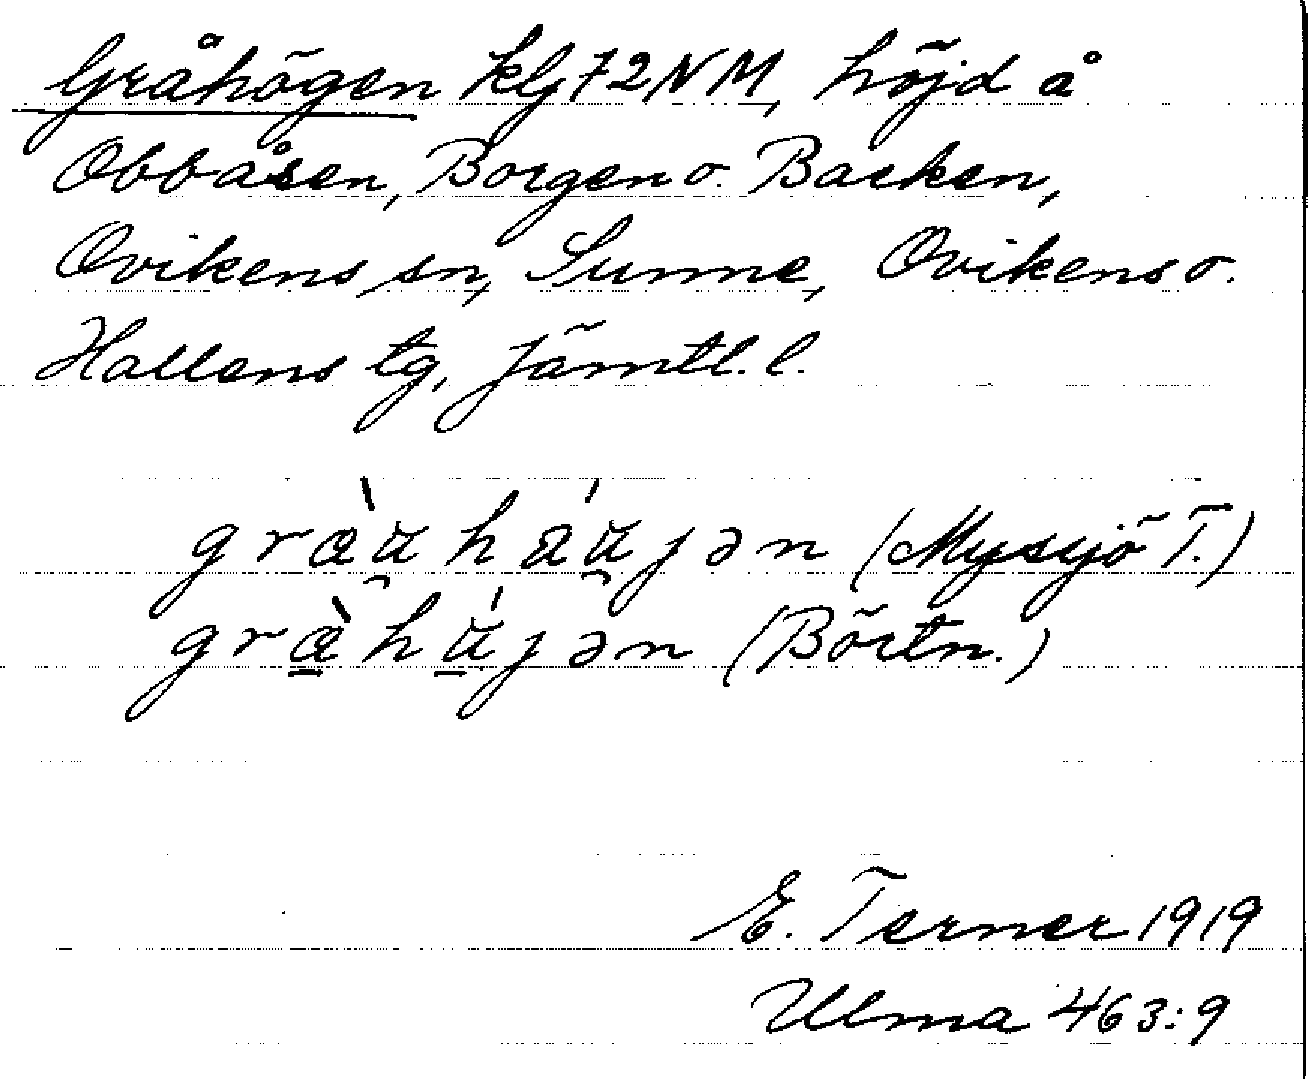 Gråhögen klj 72 NM, höjd å
Obbåsen, Borgen o. Backen,
Ovikens sn, Sunne, Ovikens o.
Hallens tg, Jämtl. l.
(Mysjö T.)
(Börtn.)
E. Terner 1919
Ulma 463:9